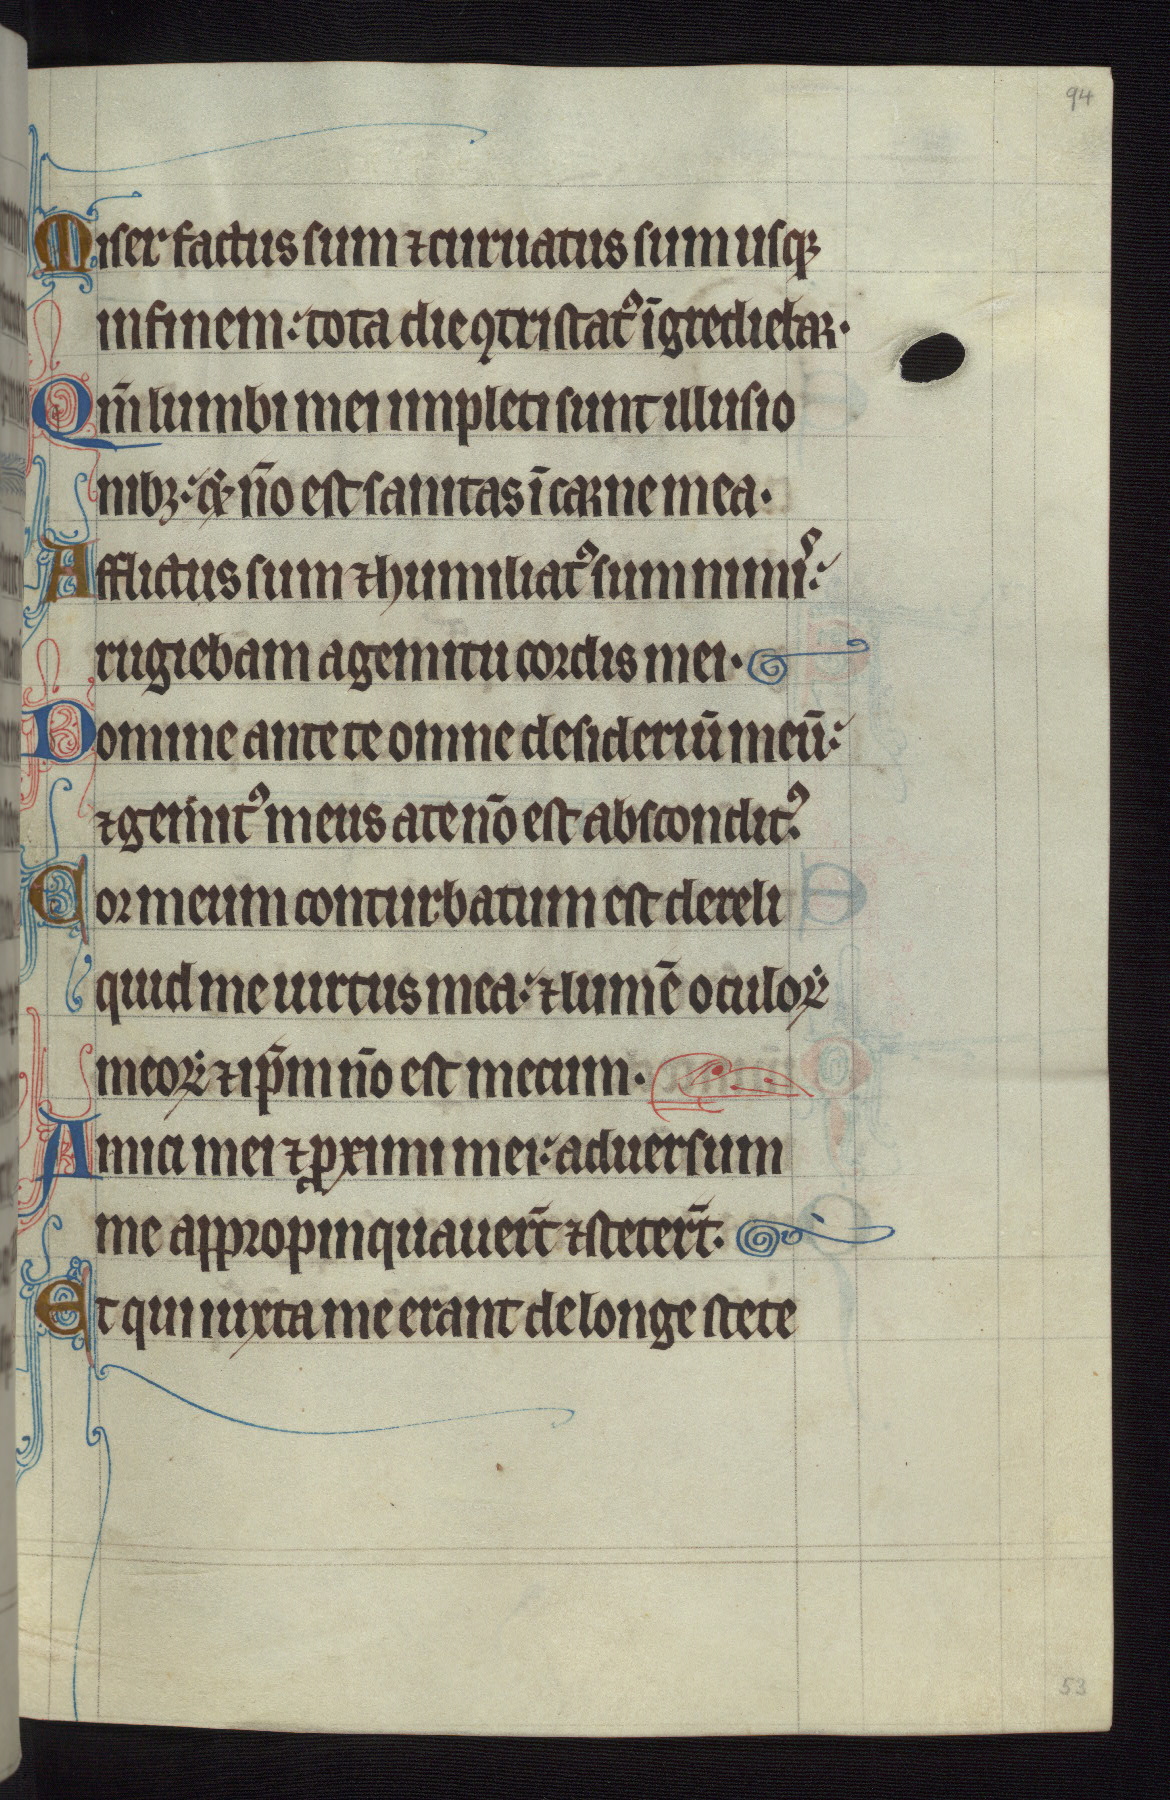 94
Miser factus sum ⁊ curuatus sum usqꝫ
in finem: tota die ꝯtristatꝰ īgrediebar.
Qm̄ lumbi mei impleti sunt illusio
nibꝫ: qꝫ nō est sanitas ī carne mea.
Afflictus sum ⁊ humiliatꝰ sum nimiˢ:
rugiebam a gemitu cordis mei.
Domine ante te omne desideriū meū:
⁊ gemitꝰ meus a te nō est absconditꝰ.
Cor meum conturbatum est dereli
quid me uirtus mea: ⁊ lumē oculoꝝ
meoꝝ ⁊ ip̄m nō est mecum.
Amici mei ⁊ ꝓximi mei: aduersum
me appropinquauer̄t ⁊ steter̄t.
Et qui iuxta me erant de longe stete
53